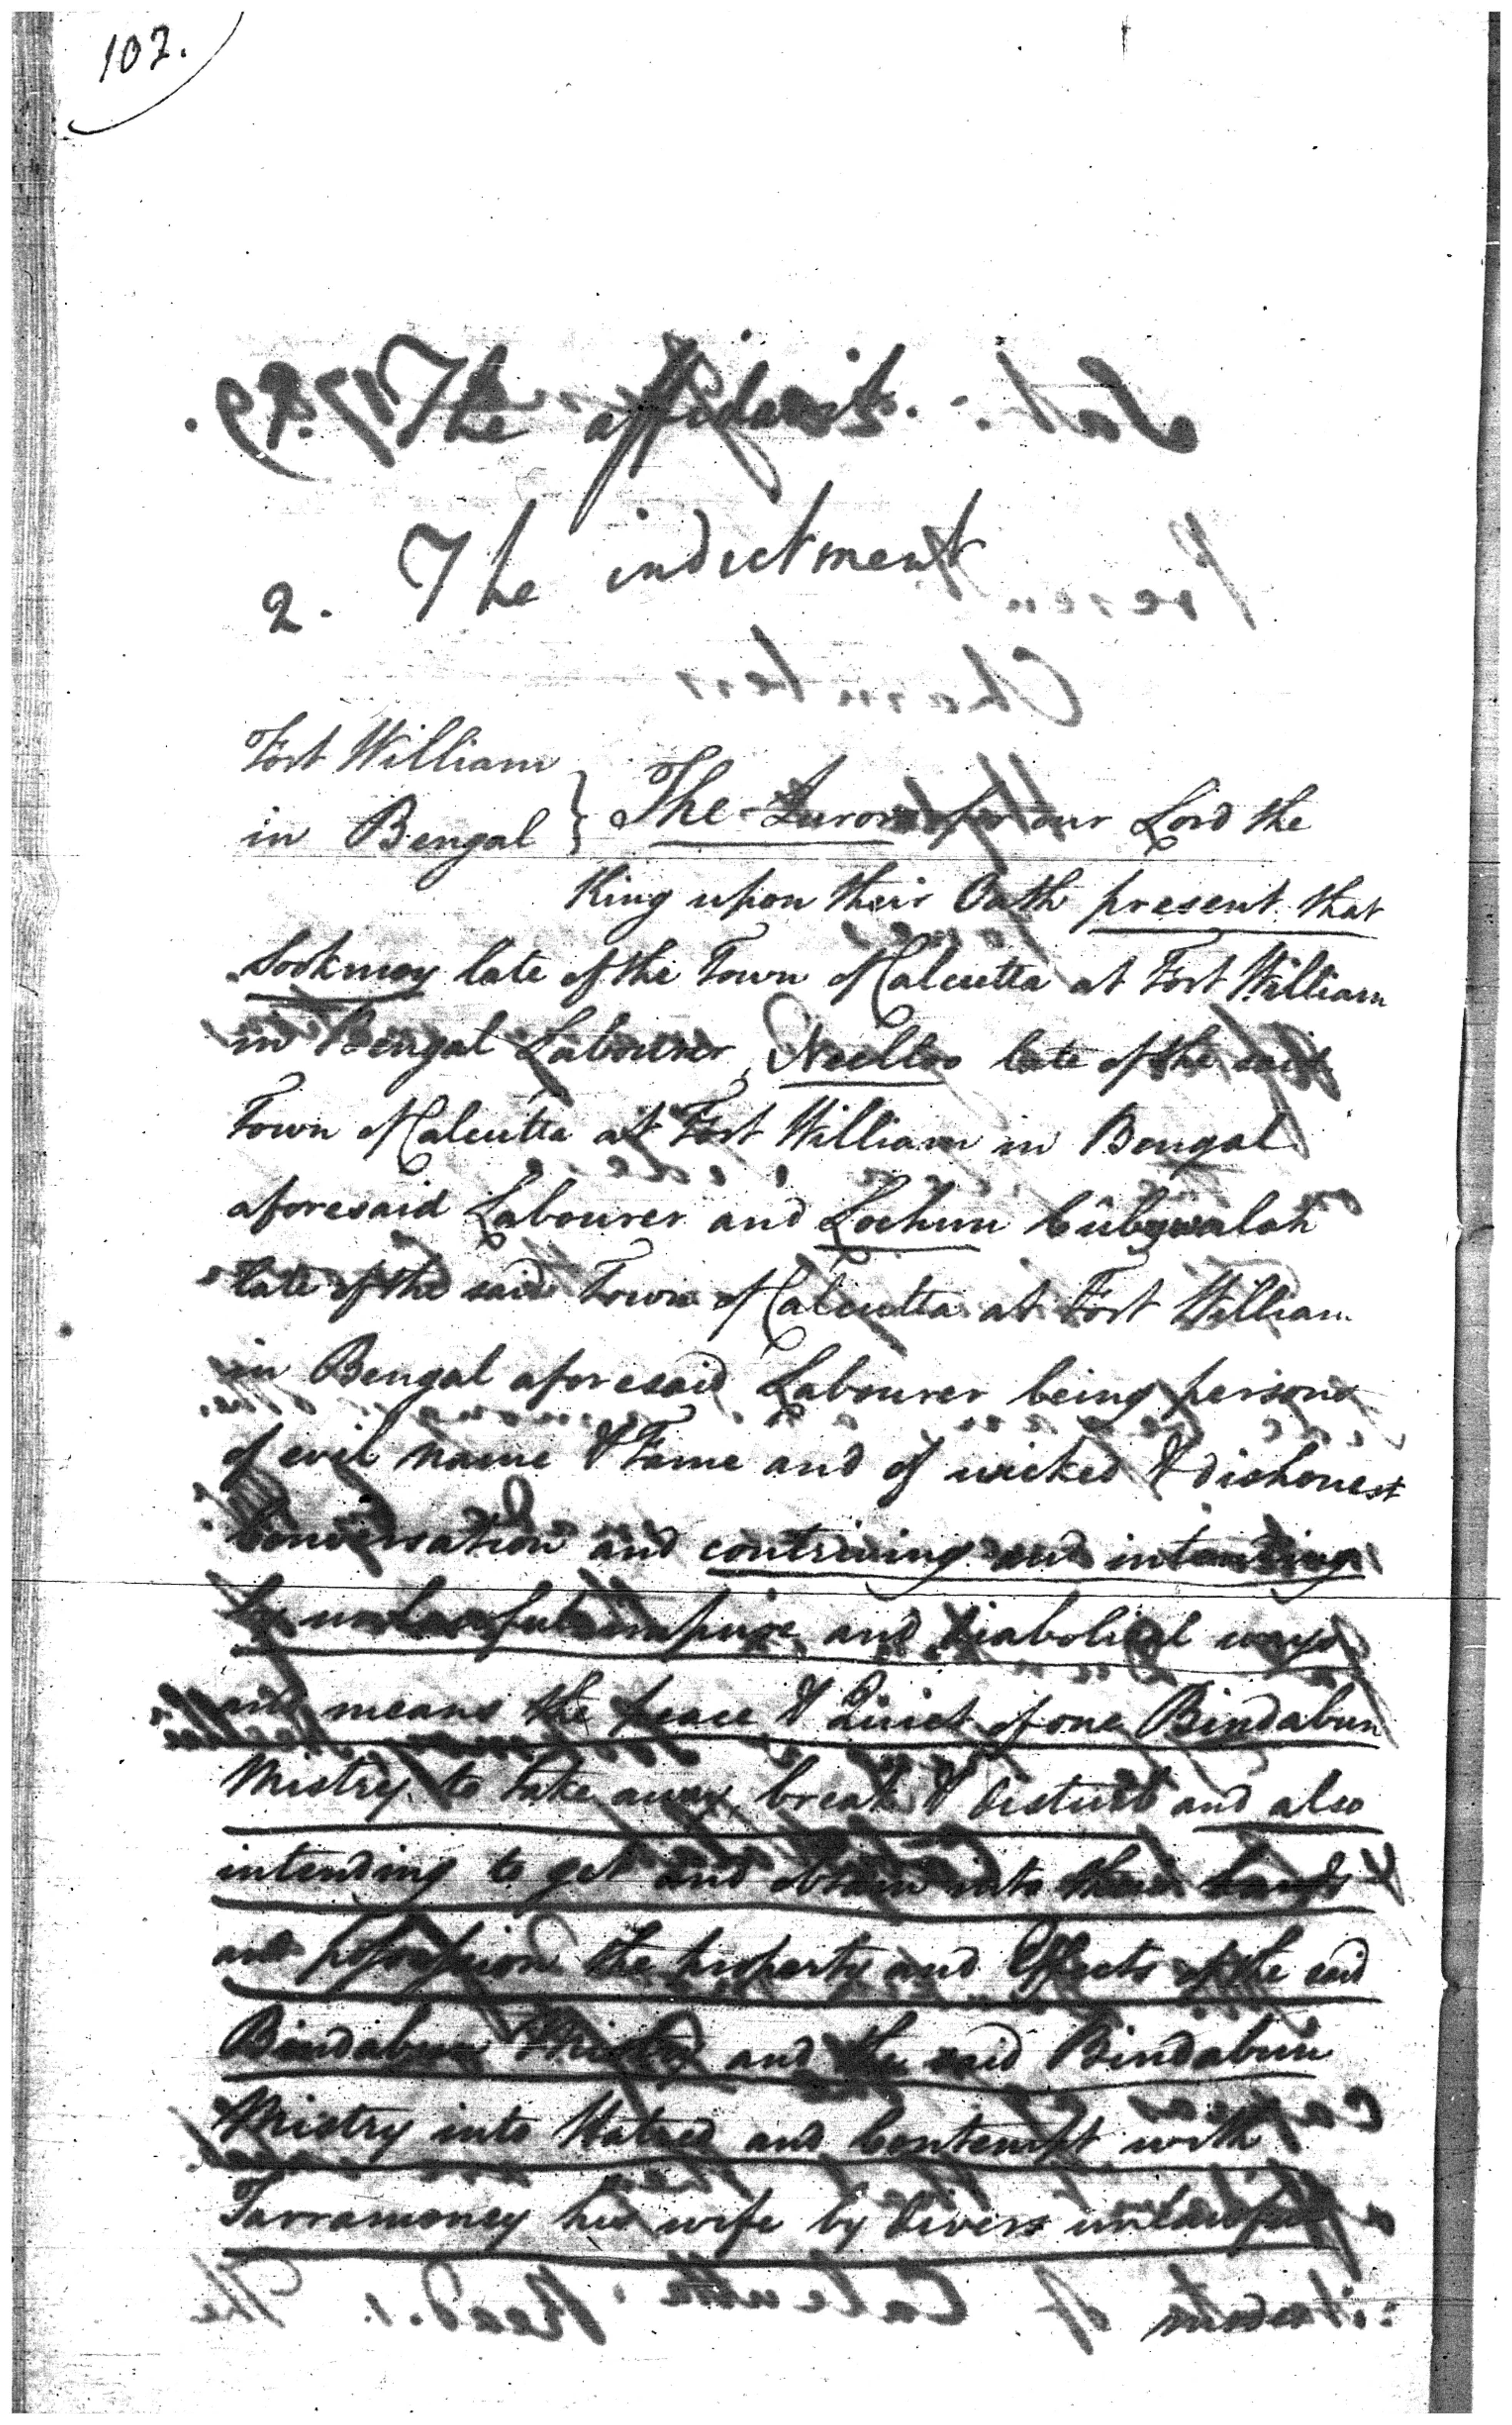 102.
The affidavit.
2. The indictment
Fort William
in Bengal } The Jurors for our Lord the
King upon their Oath present that
Sookmoy late of the Town of Calcutta at Fort William
in Bengal Labourer, Neelloo late of the said
Town of Calcutta at Fort William in Bengal
aforesaid Labourer and Lochun
late of the said Town of Calcutta at Fort William
in Bengal aforesaid Labourer being persons
of evil name & Fame and of wicked & dishonest
Conversation and contriving and intending
by unlawful impure and diabolical ways
and means the peace & Quiet of one Bindabun
Mistry to take away, break & disturb and also
intending to get and obtain into their hands
and possession the property and Effects of the said
Bindabun Mistry and the said Bindabun
Mistry into Hatred and Contempt with
Tarramoney his wife by divers unlawful
modes